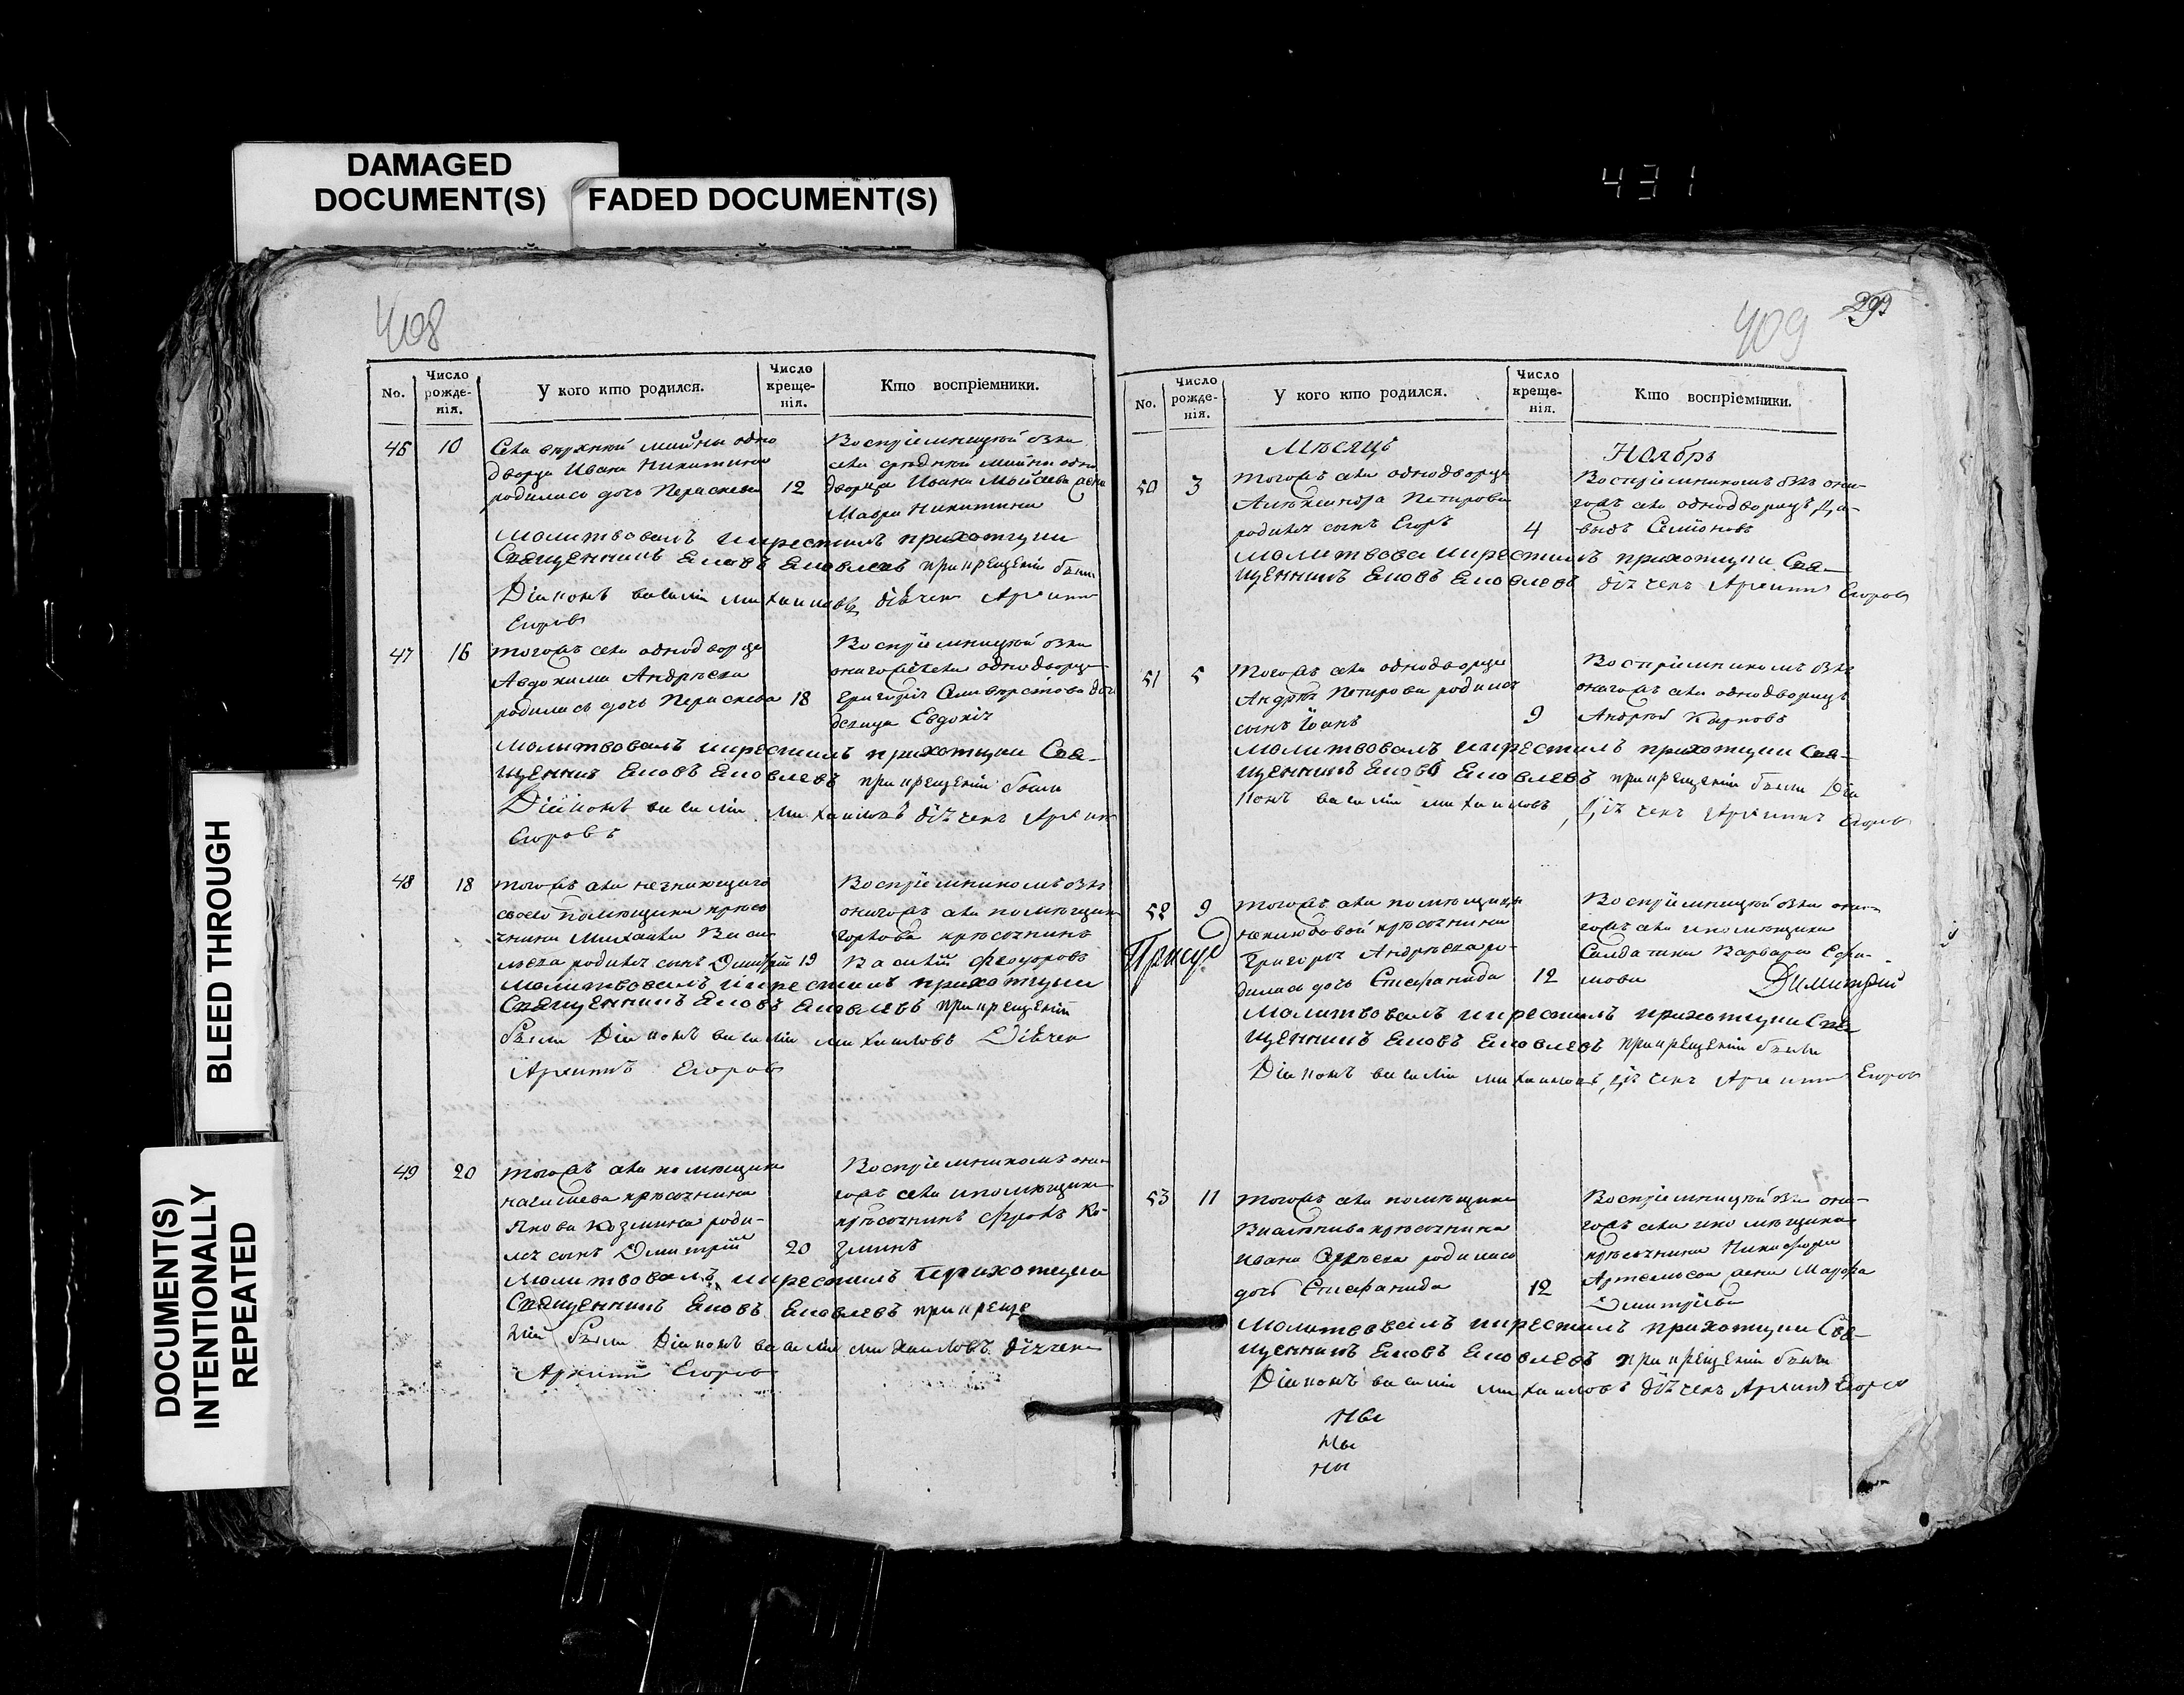 DAMAGED
DOCUMENT(S)
FADED DOCUMENT(S)
431
BLEED THROUGH
DOCUMENT(S)
INTENTIONALLY
REPEATED
408
No.
Число рожде-нія.
У кого кто родился.
Число креще-нія.
Кто воспріемники.
46 10
Села одно
дворца Ивана Никитина
родилась дочь Параскева 12
Воспріемницей была
села одно
дворца Ивана Мойсева жена
Мавра Никитина
Молитвовалъ и крестилъ приходцкии
Священникъ Еаковъ Еаковлевъ при крещеніи были
Діаконъ василіи михаиловъ дьячек Архипъ
Егоровъ
47 16
тогожъ села однодворца
Авдокима Андрѣева
родилась дочь Параскева 18
Воспріемницей была
онагожъ села однодворца
Григорія
Евдокія
Молитвовалъ и крестилъ приходцкии Свя-
щенникъ Еаковъ Еаковлевъ при крещеніи были
Діаконъ василіи михаиловъ дьячекъ Архипъ
Егоровъ
48 18
тогожъ села
своего помѣщика кресть
янина Михаила Васи
льева родился сынъ Дмитрій 19
Воспріемникомъ былъ
онагожъ села помѣщика
крестьянинъ
Василій Феодоровъ
Молитвовалъ и крестилъ приходцкии
Священникъ Еаковъ Еаковлевъ при крещеніи
были Діаконъ василіи михаиловъ Дьячек
Архипъ Егоровъ
49 20
тогожъ села помѣщика
крестьянина
Якова Козмина роди-
лся сынъ Дмитрій 20
Воспріемникомъ она-
гожъ села помѣщика
крестьянинъ Фролъ Ко-
зминъ
Молитвовалъ и крестилъ Приходцкии
Священникъ Еаковъ Еаковлевъ при креще
ніи были Діаконъ василіи михаиловъ дьячек
Архипъ Егоровъ
409
299
No.
Число рожде-нія.
У кого кто родился.
Число креще-нія.
Кто воспріемники.
Мѣсяцъ Ноябрь
50 3
тогожъ села однодворца
Петрова
родился сынъ Егоръ 4
Воспріемникомъ былъ она-
гожъ села однодворецъ Да-
выдъ Семіоновъ
Молитвова и крестилъ приходцкии Свя-
щенникъ Еаковъ Еаковлевъ дьячекъ Архипъ Егоровъ
51 5
Тогожъ села однодворца
Андрея Петрова родился
сынъ Іоанъ 9
Воспріемникомъ былъ
онагожъ села однодворецъ
Андрей Карповъ
Молитвовалъ и крестилъ приходцкии Свя-
щенникъ Еаковъ Еаковлевъ при крещеніи были Діа
конъ василіи михаиловъ, Дьячекъ Архипъ Егоровъ
52 9
тогожъ села помѣщицы
крестьянина
Григорья Андрѣева ро-
дилась дочь Стефанида 12
Воспріемницей была она-
гожъ села помѣщика
Салдатика Варвара Ефи-
мова
Димитрій
Молитвовалъ и крестилъ приходцкии Свя
щенникъ Еаковъ Еаковлевъ при крещеніи были
Діаконъ василіи михаиловъ, дьячекъ Архипъ Егоровъ
53 11
тогожъ села помѣщика
крестьянина
Ивана родилась
дочь Стефанида 12
Воспріемницей была она-
гожъ села помѣщика
крестьянина Никифора
жена Марфа
Дмитріева
Молитвовалъ и крестилъ приходцкии Свя-
щенникъ Еаковъ Еаковлевъ при крещеніи были
Діаконъ василіи михаиловъ дьячекъ Архипъ Егоров